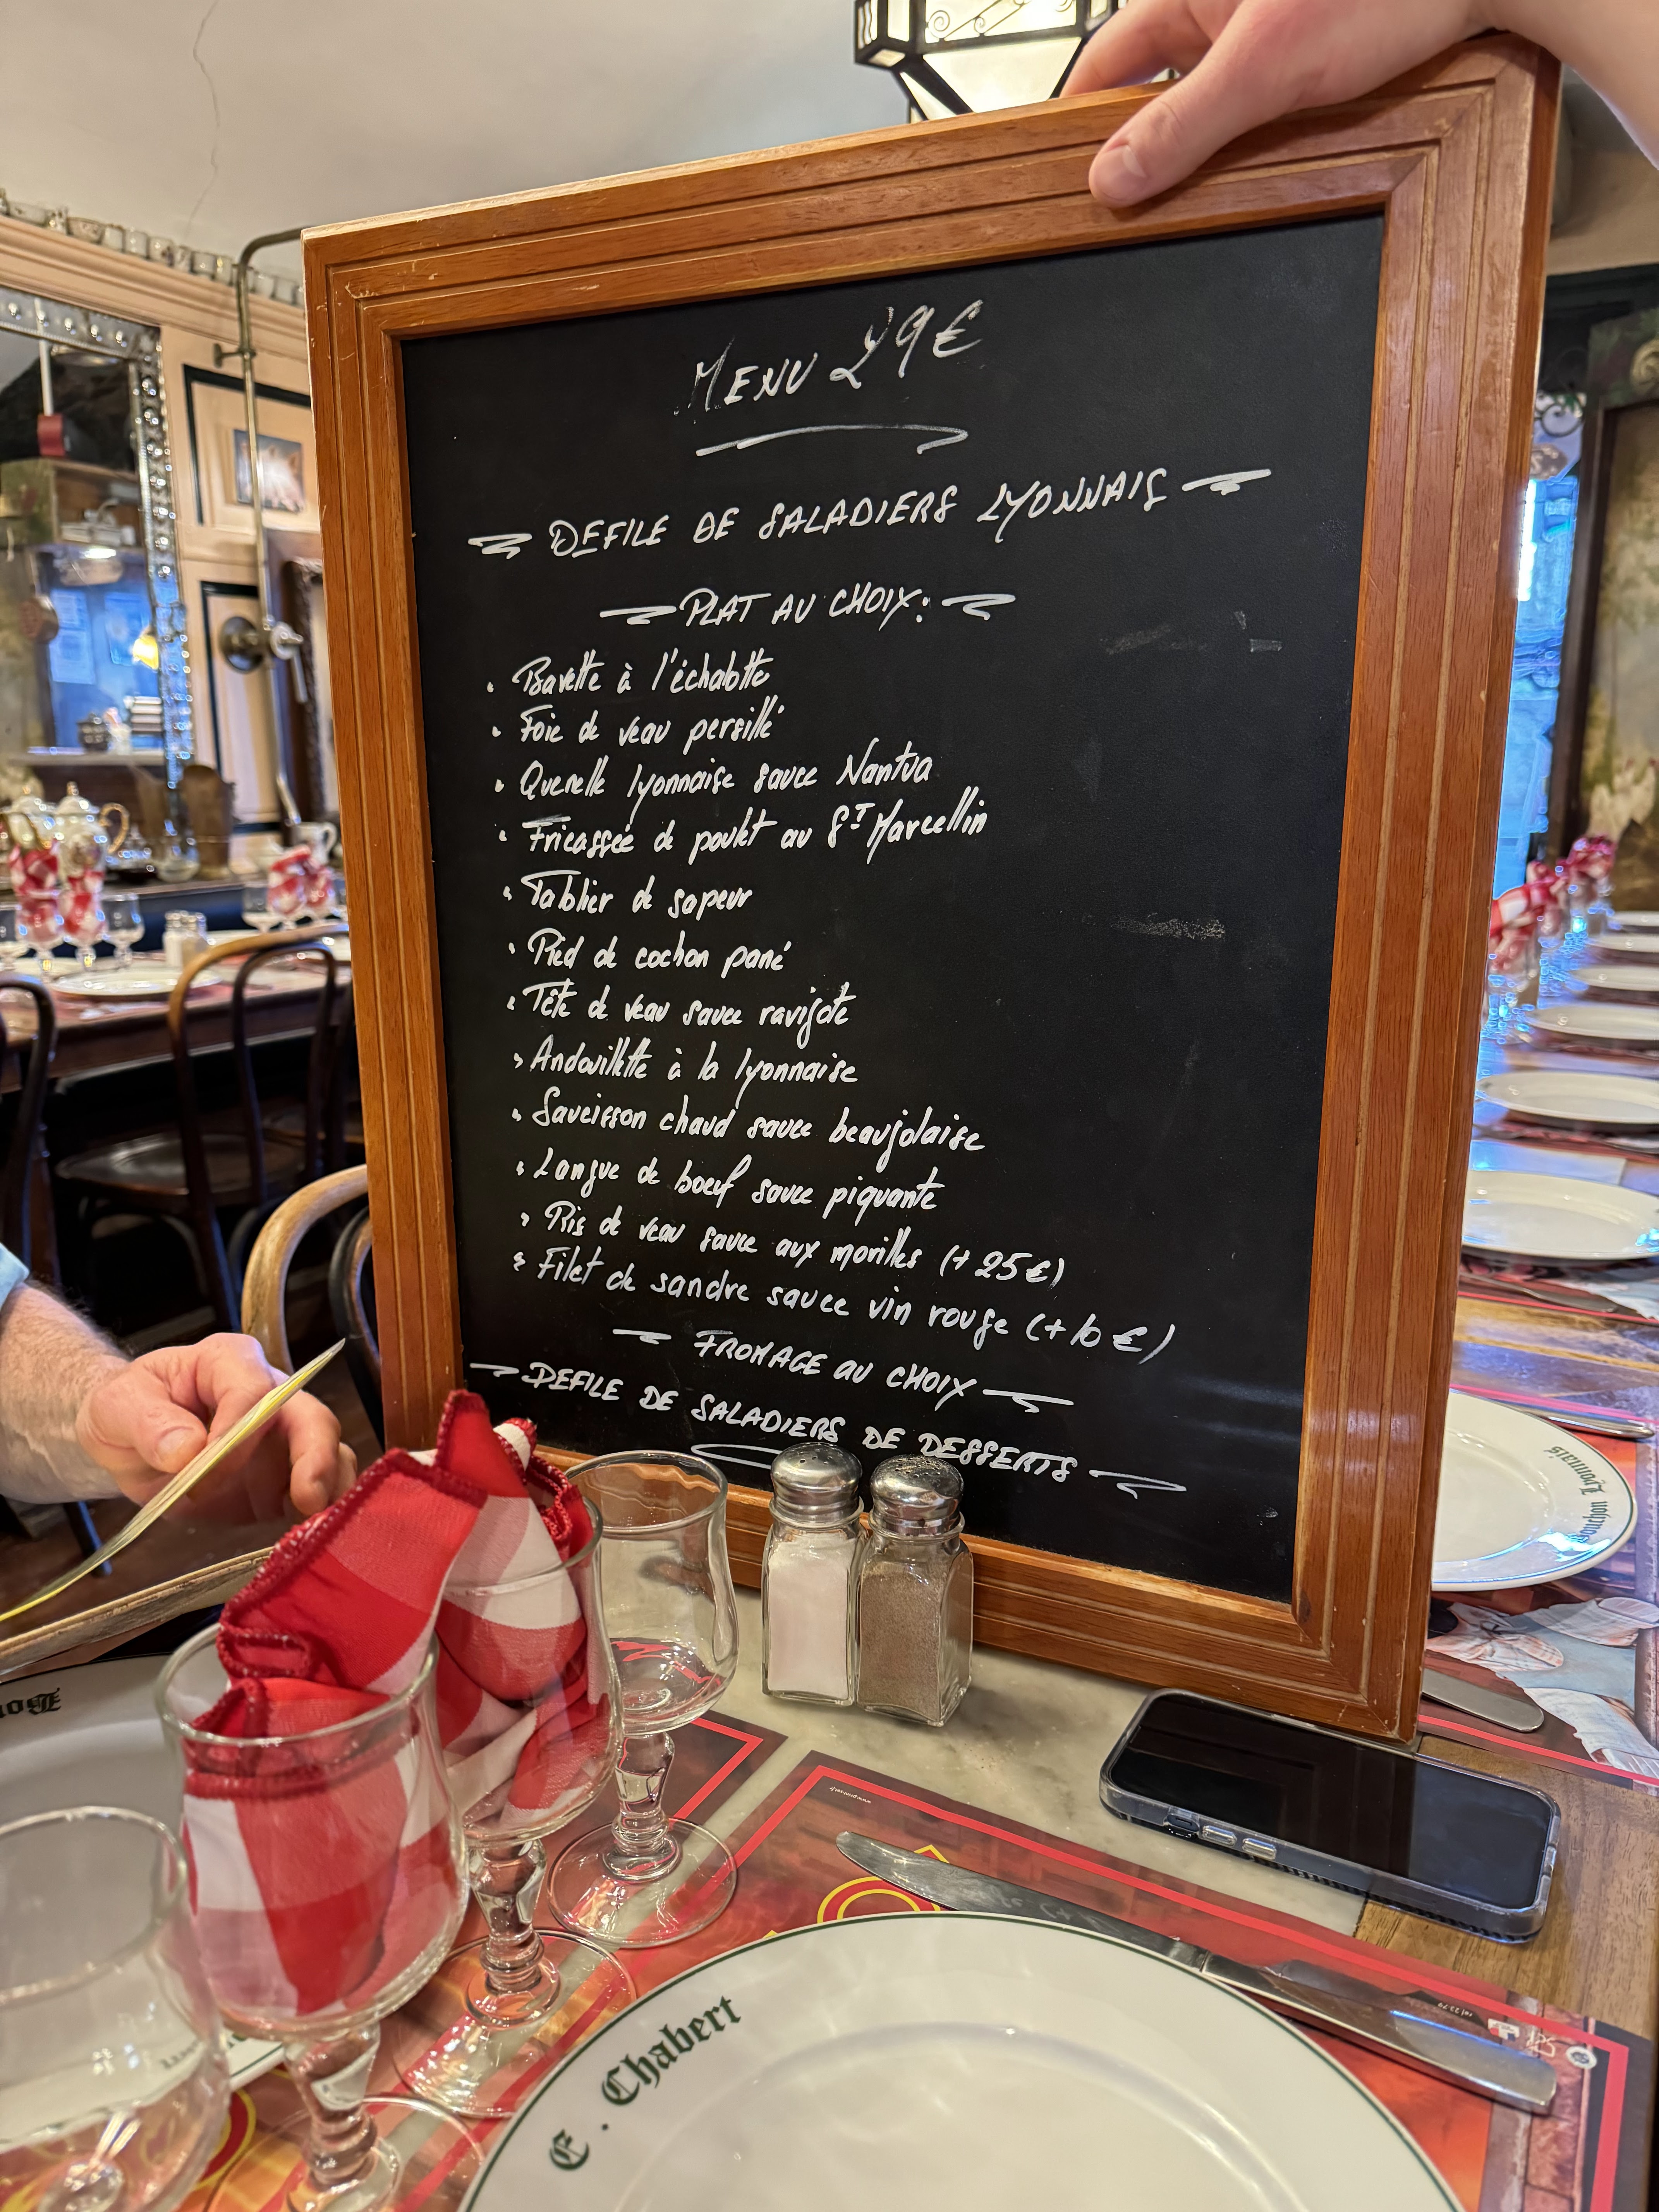 MENU 29€
DEFILE DE SALADIERS LYONNAIS
PLAT AU CHOIX:
• Bavette à l'échalotte
• Foie de veau persillé
• Quenelle lyonnaise sauce Nantua
• Fricassée de poulet au ST Marcellin
• Tablier de sapeur
• Pied de cochon pané
• Tête de veau sauce ravigote
• Andouillette à la lyonnaise
• Saucisson chaud sauce beaujolaise
• Langue de boeuf sauce piquante
• Ris de veau sauce aux morilles (+25€)
• Filet de sandre sauce vin rouge (+10€)
FROMAGE AU CHOIX
DEFILE DE SALADIERS DE DESSERTS
Bouchon Lyonnais
Bou
E. Chabert